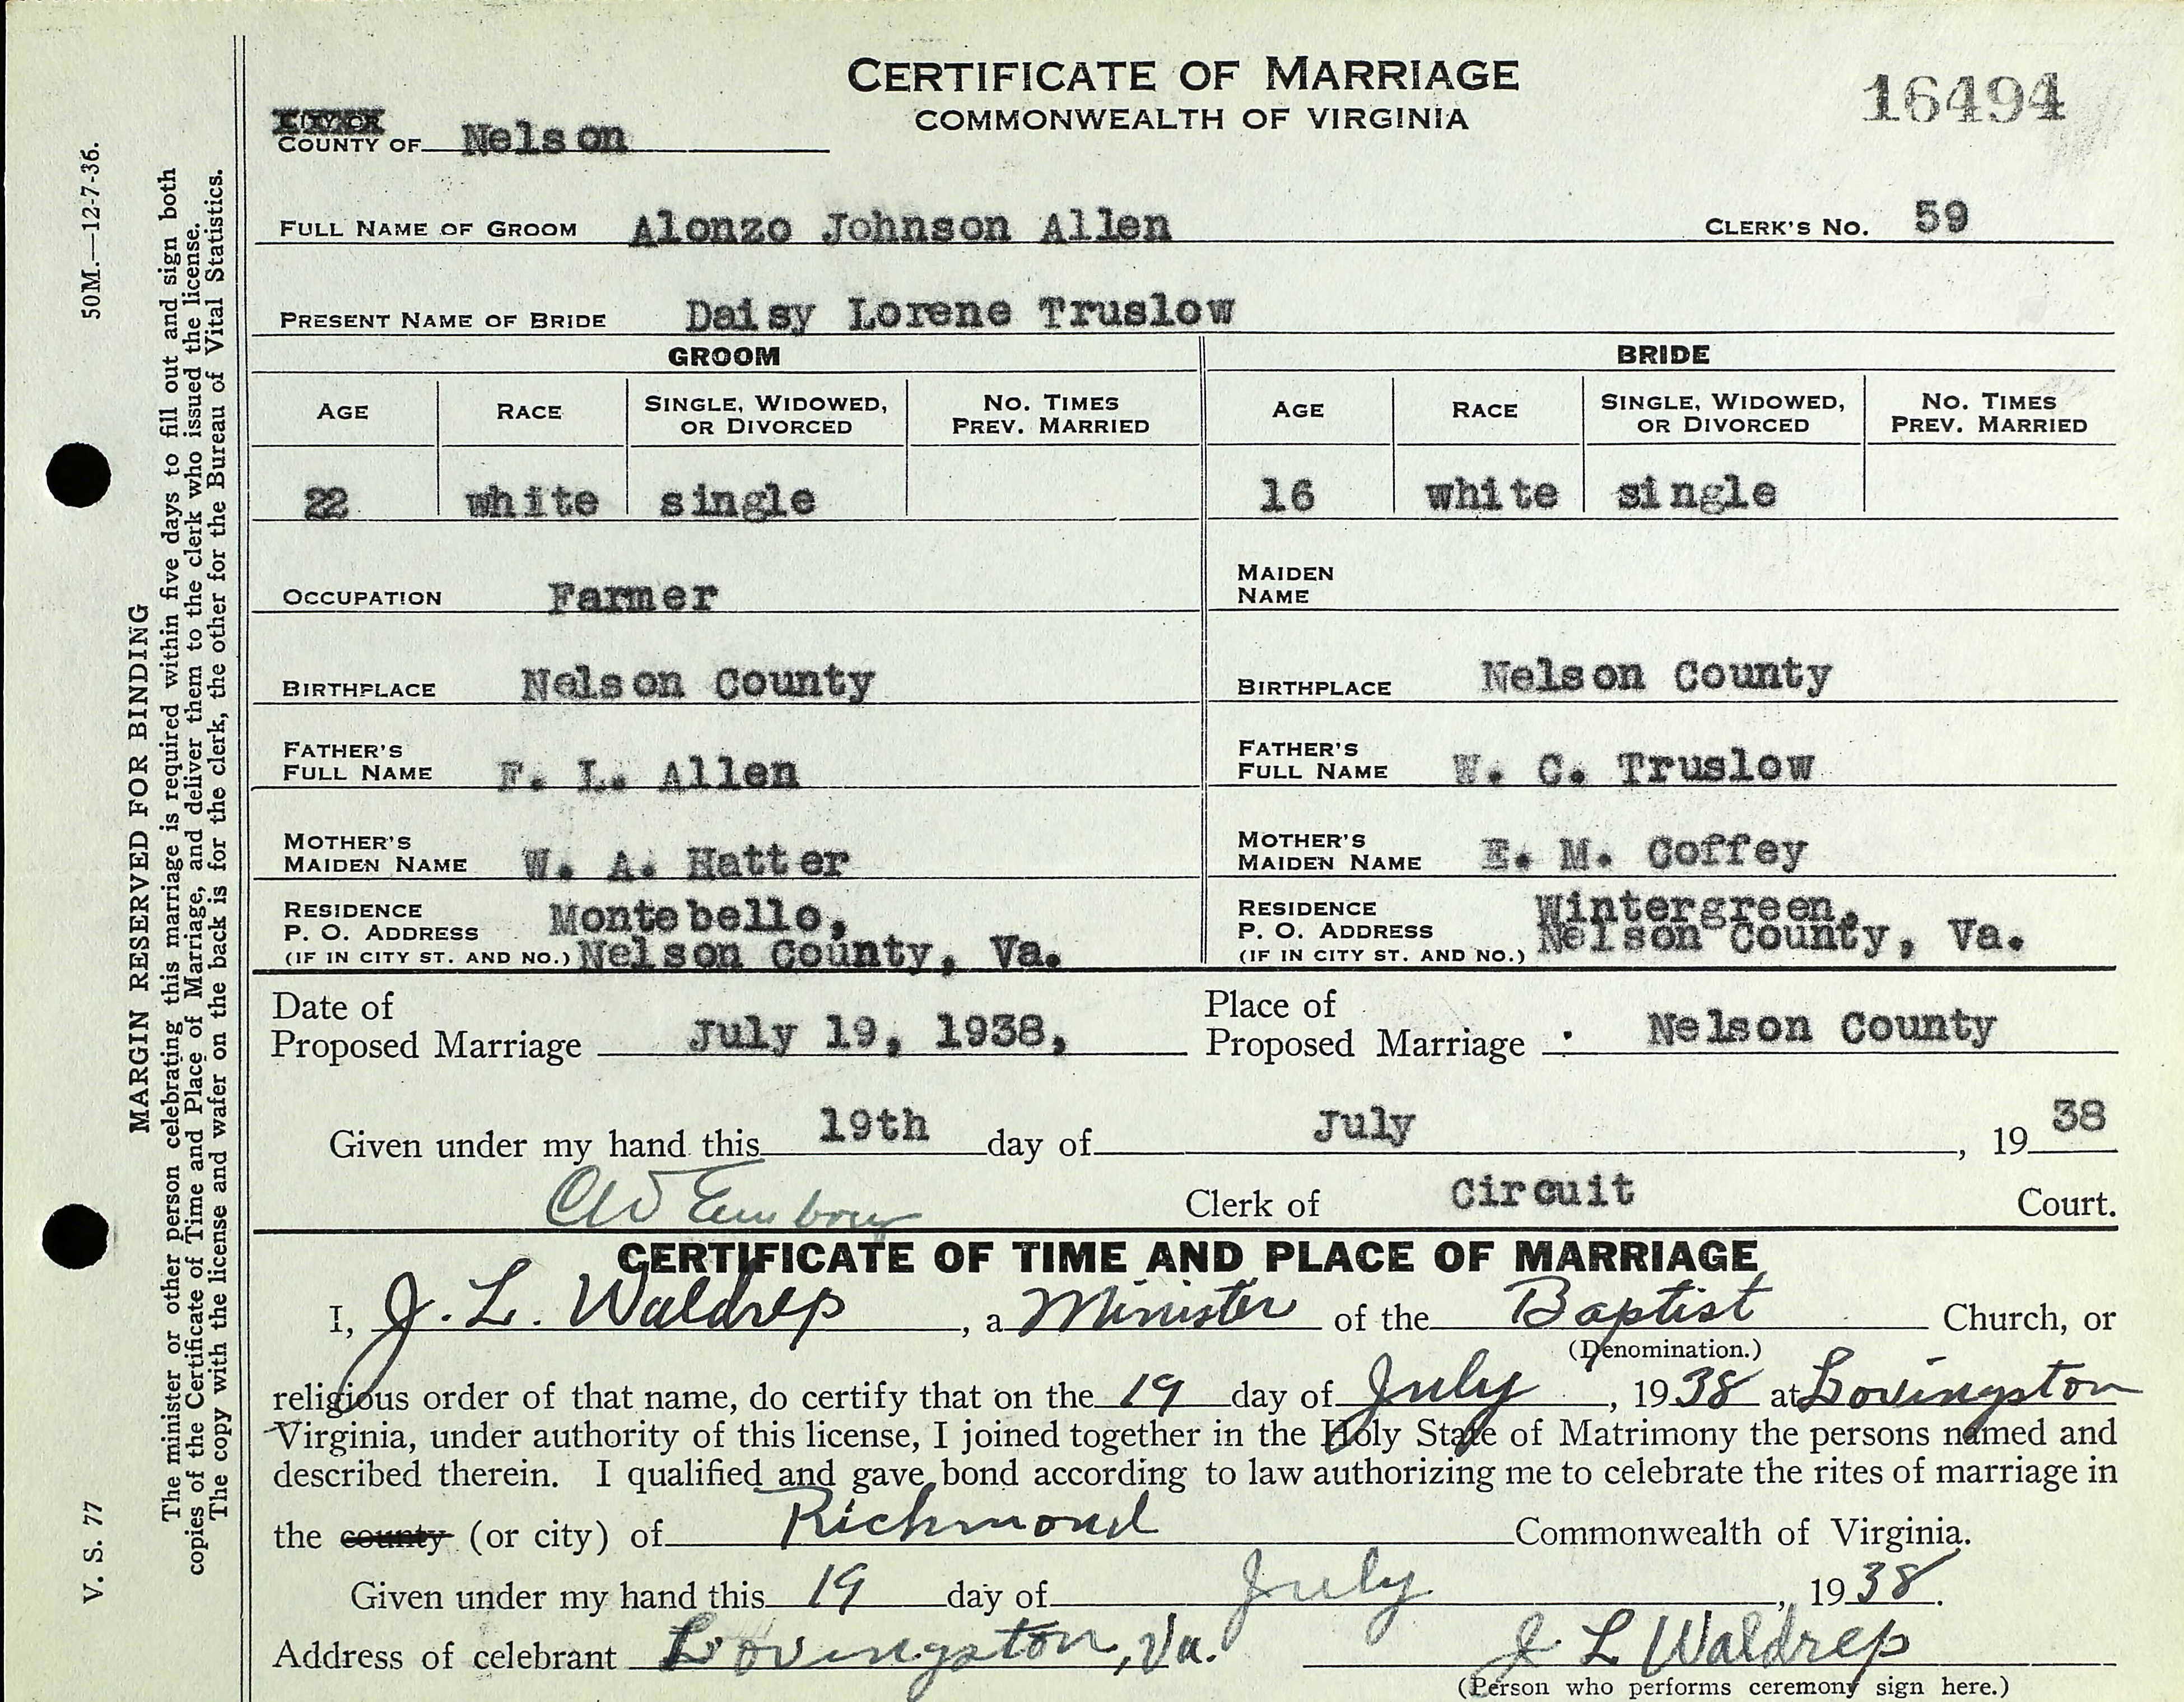 CERTIFICATE OF MARRIAGE
COMMONWEALTH OF VIRGINIA
16494
CITY OR
COUNTY OF Nelson
FULL NAME OF GROOM Alonzo Johnson Allen CLERK'S NO. 59
PRESENT NAME OF BRIDE Daisy Lorene Truslow
GROOM BRIDE
AGE RACE SINGLE, WIDOWED, OR DIVORCED NO. TIMES PREV. MARRIED AGE RACE SINGLE, WIDOWED, OR DIVORCED NO. TIMES PREV. MARRIED
22 white single 16 white single
OCCUPATION Farmer MAIDEN NAME
BIRTHPLACE Nelson County BIRTHPLACE Nelson County
FATHER'S FULL NAME F. L. Allen FATHER'S FULL NAME W. C. Truslow
MOTHER'S MAIDEN NAME W. A. Hatter MOTHER'S MAIDEN NAME E. M. Coffey
RESIDENCE P. O. ADDRESS (IF IN CITY ST. AND NO.) Montebello, Nelson County, Va. RESIDENCE P. O. ADDRESS (IF IN CITY ST. AND NO.) Wintergreen, Nelson County, Va.
Date of Proposed Marriage July 19, 1938, Place of Proposed Marriage : Nelson County
Given under my hand this 19th day of July, 1938
Clerk of Circuit Court.
CERTIFICATE OF TIME AND PLACE OF MARRIAGE
I, J. L. Waldrep, a Minister of the Baptist Church, or
(Denomination.)
religious order of that name, do certify that on the 19 day of July, 1938 at Lovingston
Virginia, under authority of this license, I joined together in the Holy State of Matrimony the persons named and
described therein. I qualified and gave bond according to law authorizing me to celebrate the rites of marriage in
the county (or city) of Richmond Commonwealth of Virginia.
Given under my hand this 19 day of July, 1938.
Address of celebrant Lovingston, Va. J L Waldrep
(Person who performs ceremony sign here.)
50M.—12-7-36.
MARGIN RESERVED FOR BINDING
The minister or other person celebrating this marriage is required within five days to fill out and sign both
copies of the Certificate of Time and Place of Marriage, and deliver them to the clerk who issued the license.
The copy with the license and wafer on the back is for the clerk, the other for the Bureau of Vital Statistics.
V. S. 77